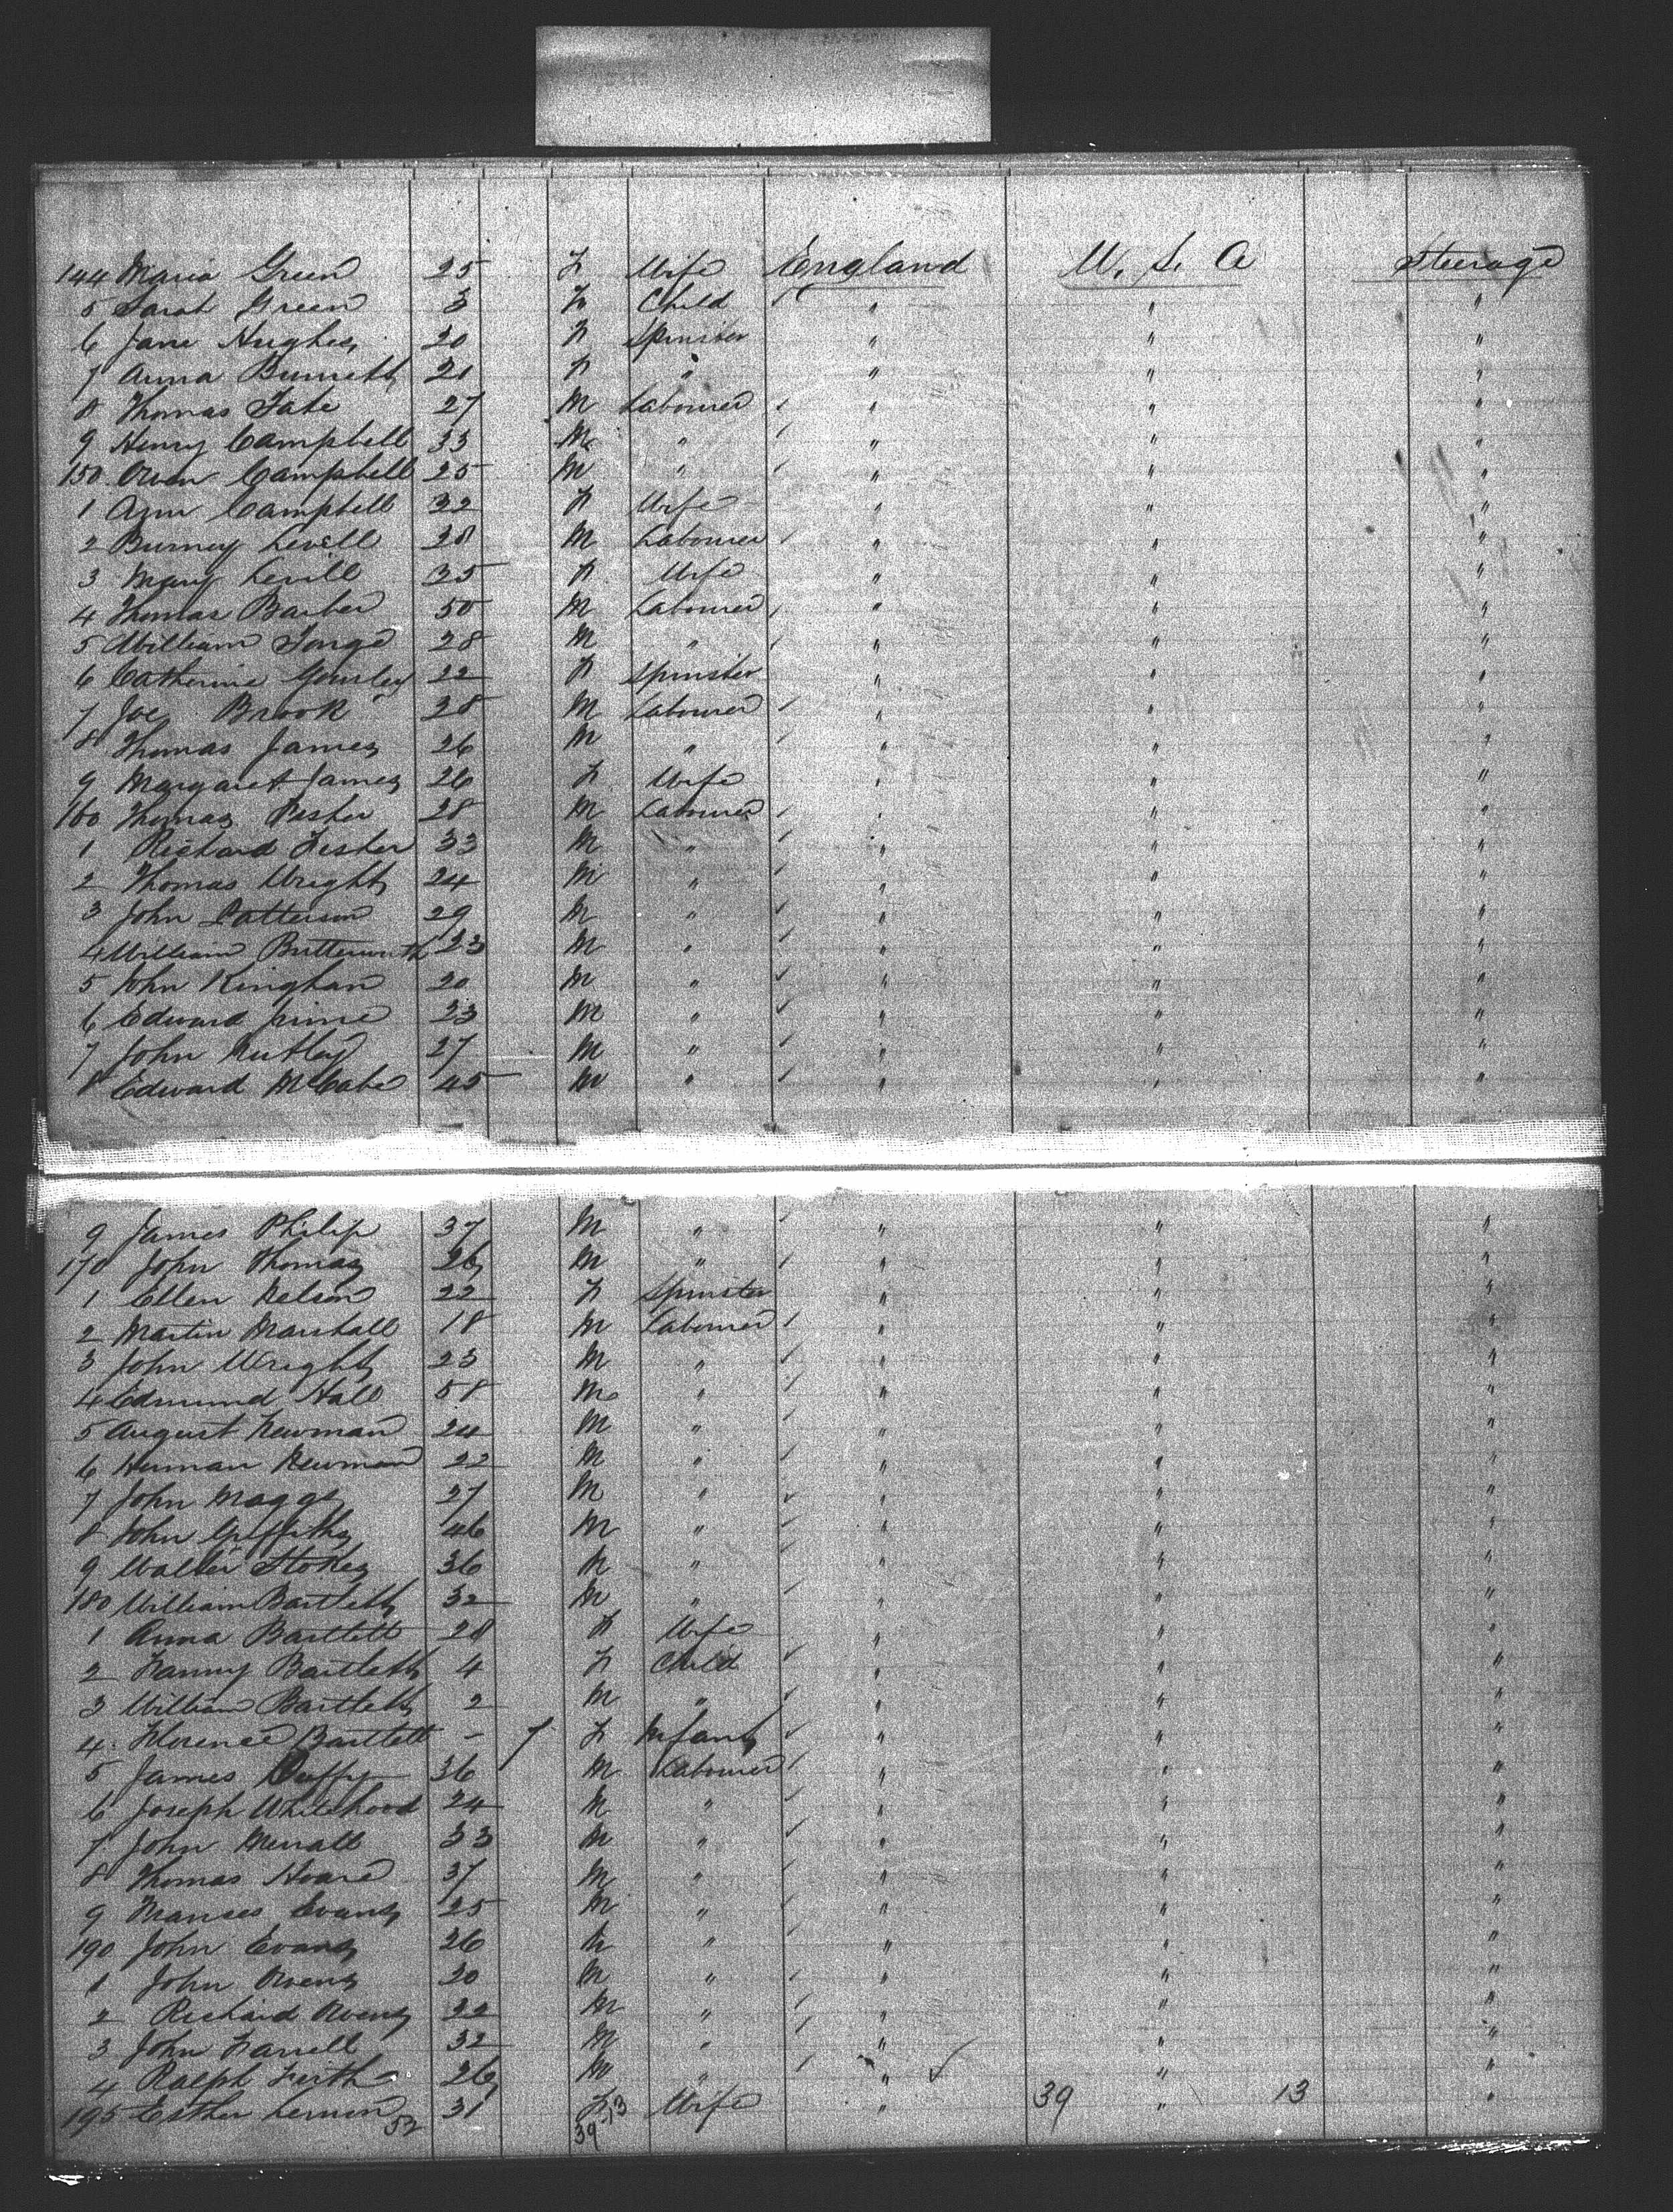 144 Maria Green 25 F Wife England U. S. A Steerage
5 Sarah Green 3 F Child " " "
6 Jane Hughes 20 F Spinster " " "
7 Anna Burnett 21 F " " " "
8 Thomas Tate 27 M Labourer " " "
9 Henry Campbell 33 M " " " "
150 Owen Campbell 25 M " " " "
1 Ann Campbell 32 F Wife " " "
2 Burney Levill 28 M Labourer " " "
3 Mary Levill 35 F Wife " " "
4 Thomas Barber 50 M Labourer " " "
5 William Tonge 28 M " " " "
6 Catherine Gourley 22 F Spinster " " "
7 Joe Brook 28 M Labourer " " "
8 Thomas James 26 M " " " "
9 Margaret James 26 F Wife " " "
160 Thomas 28 M Labourer " " "
1 Richard Fisher 33 M " " " "
2 Thomas Wright 24 M " " " "
3 John Patterson 29 M " " " "
4 William Butterworth 23 M " " " "
5 John Kinghan 20 M " " " "
6 Edward 23 M " " " "
7 John Nutley 27 M " " " "
8 Edward McCabe 45 M " " " "
9 James Philip 37 M " " " "
170 John Thomas 26 M " " " "
1 Ellen Nelson 22 F Spinster " " "
2 Martin Marshall 18 M Labourer " " "
3 John Wright 23 M " " " "
4 Edmund Hall 58 M " " " "
5 August Newman 24 M " " " "
6 Herman Newman 22 M " " " "
7 John Maggs 27 M " " " "
8 John Griffiths 46 M " " " "
9 Walter Stokes 36 M " " " "
180 William Bartlett 32 M " " " "
1 Anna Bartlett 28 F Wife " " "
2 Fanny Bartlett 4 F Child " " "
3 William Bartlett 2 M " " " "
4 Florence Bartlett - 7 F Infant " " "
5 James Duffy 36 M Labourer " " "
6 Joseph Whitehood 24 M " " " "
7 John Merrall 33 M " " " "
8 Thomas Hoare 37 M " " " "
9 Evans 25 M " " " "
190 John Evans 26 M " " " "
1 John Owens 20 M " " " "
2 Richard Owens 22 M " " " "
3 John Farrell 32 M " " " "
4 Ralph Firth 26 M " " " "
195 Esther Lemon 31 F Wife " 39 " 13 "
52 39 13